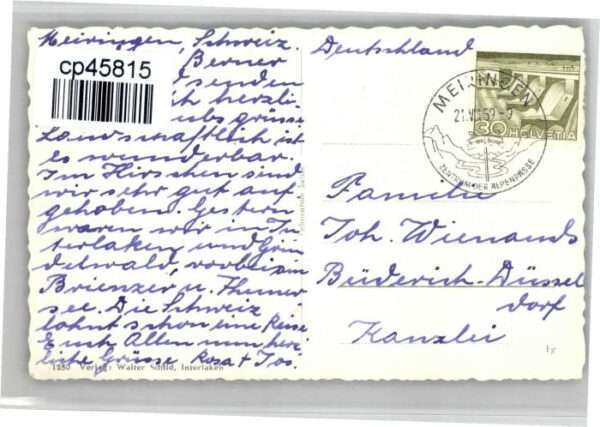 Meiringen, Schweiz.
Berner
senden
ich herzli-
ubsgrüsse
Landschaftlich ist
es wunderbar.
Im Hirschen sind
wir sehr gut auf
gehoben. Gestern
waren wir in In
terlaken und Grin
delwald, vorbei am
Brienzer u. Thuner
see. Die Schweiz
lohnt schon eine Reise
Euch Allen nun herz
liche Grüsse. Rosa + Jos.
1250 Verlag: Walter Schild, Interlaken
cp45815
Deutschland
MEIRINGEN
ZENTRUM DER ALPENPÄSSE
30 HELVETIA
Familie
Joh. Wienands
Büderich-Düssel
dorf
Kanzlei